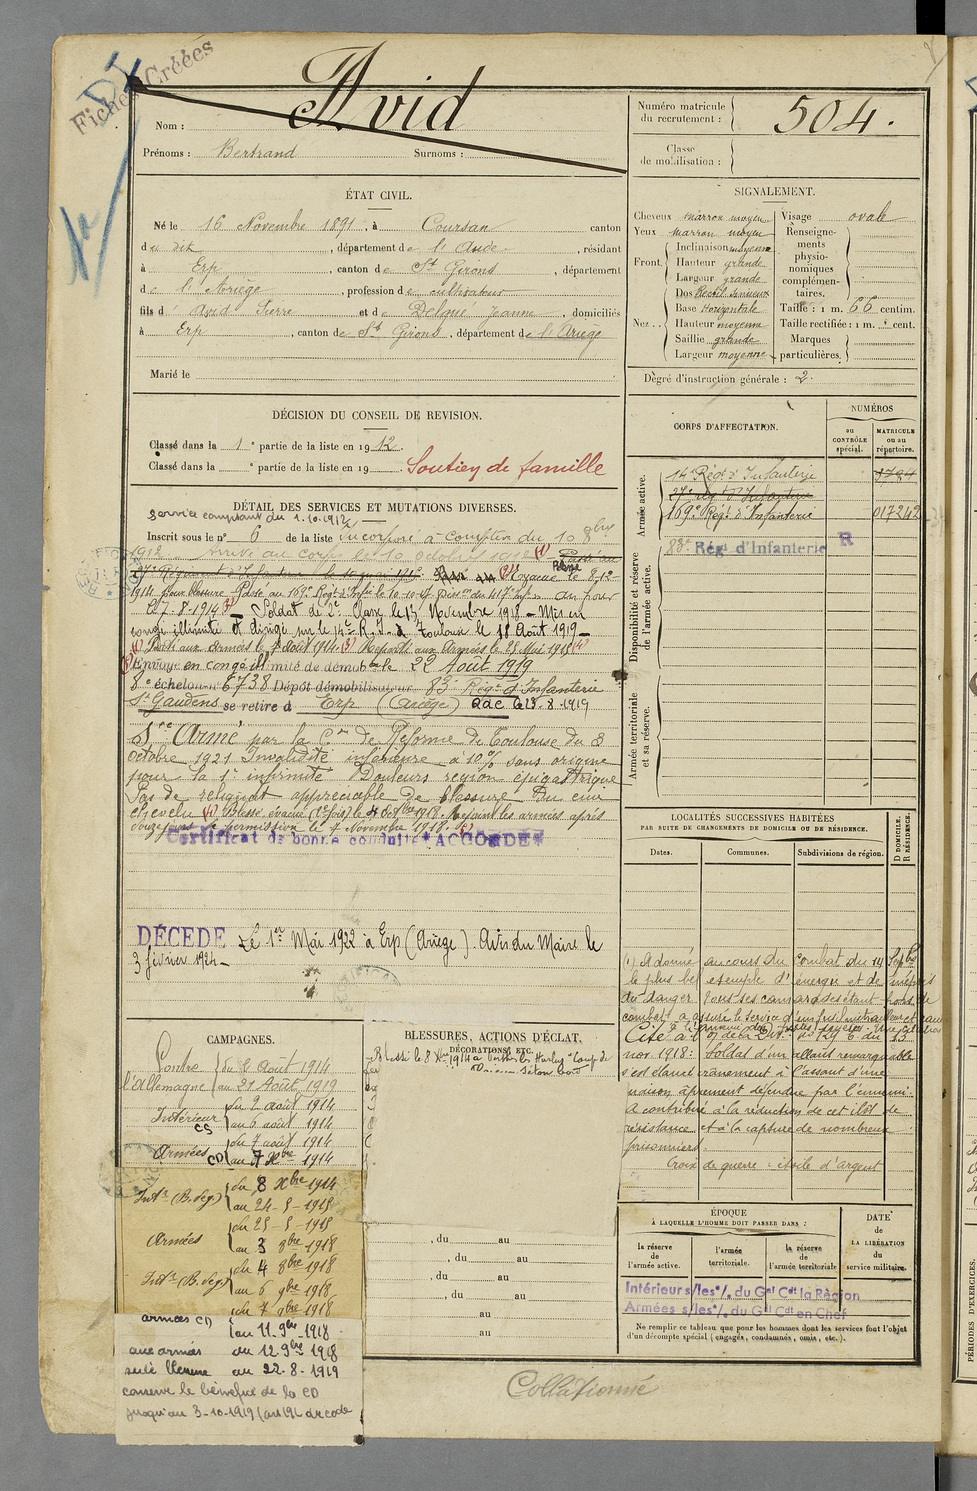 Fiches Créées
Nom : Avid
Prénoms : Bertrand Surnoms :
Numéro matricule du recrutement : 504.
Classe de mobilisation :
ÉTAT CIVIL.
Né le 16 Novembre 1891, à Coursan canton
du dit, département de l'Aude, résidant
à Erp, canton de St Girons, département
de l'Ariège, profession de cultivateur
fils d' Avid Pierre et de Delque Jeanne, domiciliés
à Erp, canton de St Girons, département de l'Ariège
Marié le
SIGNALEMENT.
Cheveux marron moyen
Yeux marron moyen
Front. Inclinaison moyenne
Hauteur grande
Largeur grande
Nez . . Dos Rectil. sinueux
Base Horizontale
Hauteur moyenne
Saillie grande
Largeur moyenne
Visage ovale
Renseignements physionomiques complémentaires.
Taille : 1 m. 66 centim.
Taille rectifiée : 1 m. cent.
Marques particulières.
Degré d'instruction générale : 2.
DÉCISION DU CONSEIL DE REVISION.
Classé dans la 1e partie de la liste en 1912.
Classé dans la e partie de la liste en 19 Soutien de famille
CORPS D'AFFECTATION.
NUMÉROS
au CONTRÔLE spécial.
MATRICULE ou au répertoire.
Armée active.
14e Régt d'Infanterie
169e Régt d'Infanterie 017242
Disponibilité et réserve de l'armée active.
83e Régt d'Infanterie R
Armée territoriale et sa réserve.
DÉTAIL DES SERVICES ET MUTATIONS DIVERSES.
Service comptant du 1.10.1912
Inscrit sous le n° 6 de la liste Incorporé à compter du 10 8bre
1912 Arrivé au corps le 10 octobre 1912 (1) Passé au
Évacué le 8-12-
1914 pour blessure Passé au 169e Régt d'Infie le 10-10-17
le 7-8-1914 Soldat de 2e Classe le 13 Novembre 1918 - Mis en
congé illimité et dirigé sur le 14e R.I. à Toulouse le 18 Août 1919 -
Parti aux armées le 7 août 1914 (3) Reparti aux Armées le 25 Mai 1915
Envoyé en congé illimité de démobon le 22 Août 1919
8e échelon n° 6738 Dépôt démobilisateur 83e Régt d'Infanterie
St Gaudens se retire à Erp (Ariège) 25-8-1919
par la Con de Réforme de Toulouse du 8
octobre 1921 Invalidité inférieure à 10% sans origine
pour la 1e infirmité Douleurs région épigastrique
Pas de reliquat appréciable de blessure du cuir
chevelu Blessé, évacué (2e fois) le 4 Octobre 1918. Rejoint les armées après
permission le 7 Novembre 1918.
Certificat de bonne conduite * ACCORDÉ *
DÉCÉDÉ Le 1er Mai 1922 à Erp (Ariège). Avis du Maire le
3 février 1924 -
LOCALITÉS SUCCESSIVES HABITÉES
PAR SUITE DE CHANGEMENTS DE DOMICILE OU DE RÉSIDENCE.
Dates. Communes. Subdivisions de région. D DOMICILE. R RÉSIDENCE.
(1) A donné au cours du combat du 14 Septbre
le plus bel exemple d'énergie et de mépris
du danger tous ses camarades étant hors de
combat a assuré le service d'un fusil mitrailleur
Cité à l'O/ de la Div. n° 129 6 du 13
nov 1918 : Soldat d'un allant remarquable
s'est élancé crânement à l'assaut d'une
maison âprement défendue par l'ennemi.
A contribué à la réduction de cet îlot de
résistance et à la capture de nombreux
prisonniers.
Croix de guerre : étoile d'argent
CAMPAGNES.
Contre l'Allemagne du 2 Août 1914
au 21 Août 1919
Intérieur CS du 2 août 1914
au 6 août 1914
Armées CD du 7 août 1914
au 7 Xbre 1914
Intr (B. de g.) du 8 Xbre 1914
au 24-5-1915
Armées du 25-5-1915
au 3 8bre 1918
Intr (B. de g.) du 4 8bre 1918
au 6 9bre 1918
armées CD du 7 9bre 1918
au 11-9bre-1918
aux armées du 12 9bre 1918
au 22-8-1919
conserve le bénéfice de la CD
jusqu'au 3-10-1919
BLESSURES, ACTIONS D'ÉCLAT,
DÉCORATIONS, ETC.
Blessé le 8 Xbre 1914 à Coup de
, du au
, du au
, du au
, du au
au
au
ÉPOQUE
À LAQUELLE L'HOMME DOIT PASSER DANS :
la réserve de l'armée active.
l'armée territoriale.
la réserve de l'armée territoriale.
DATE de LA LIBÉRATION du service militaire.
Intérieur s/les o/. du Gal Cdt la Région
Armées s/les o/. du Gal Cdt en Chef
Ne remplir ce tableau que pour les hommes dont les services font l'objet
d'un décompte spécial (engagés, condamnés, omis, etc.).
Collationné
PÉRIODES D'EXERCICES.